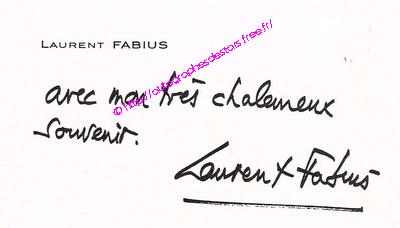 LAURENT FABIUS
avec mon très chaleureux
souvenir.
Laurent Fabius
© http://autographesdestars.free.fr/